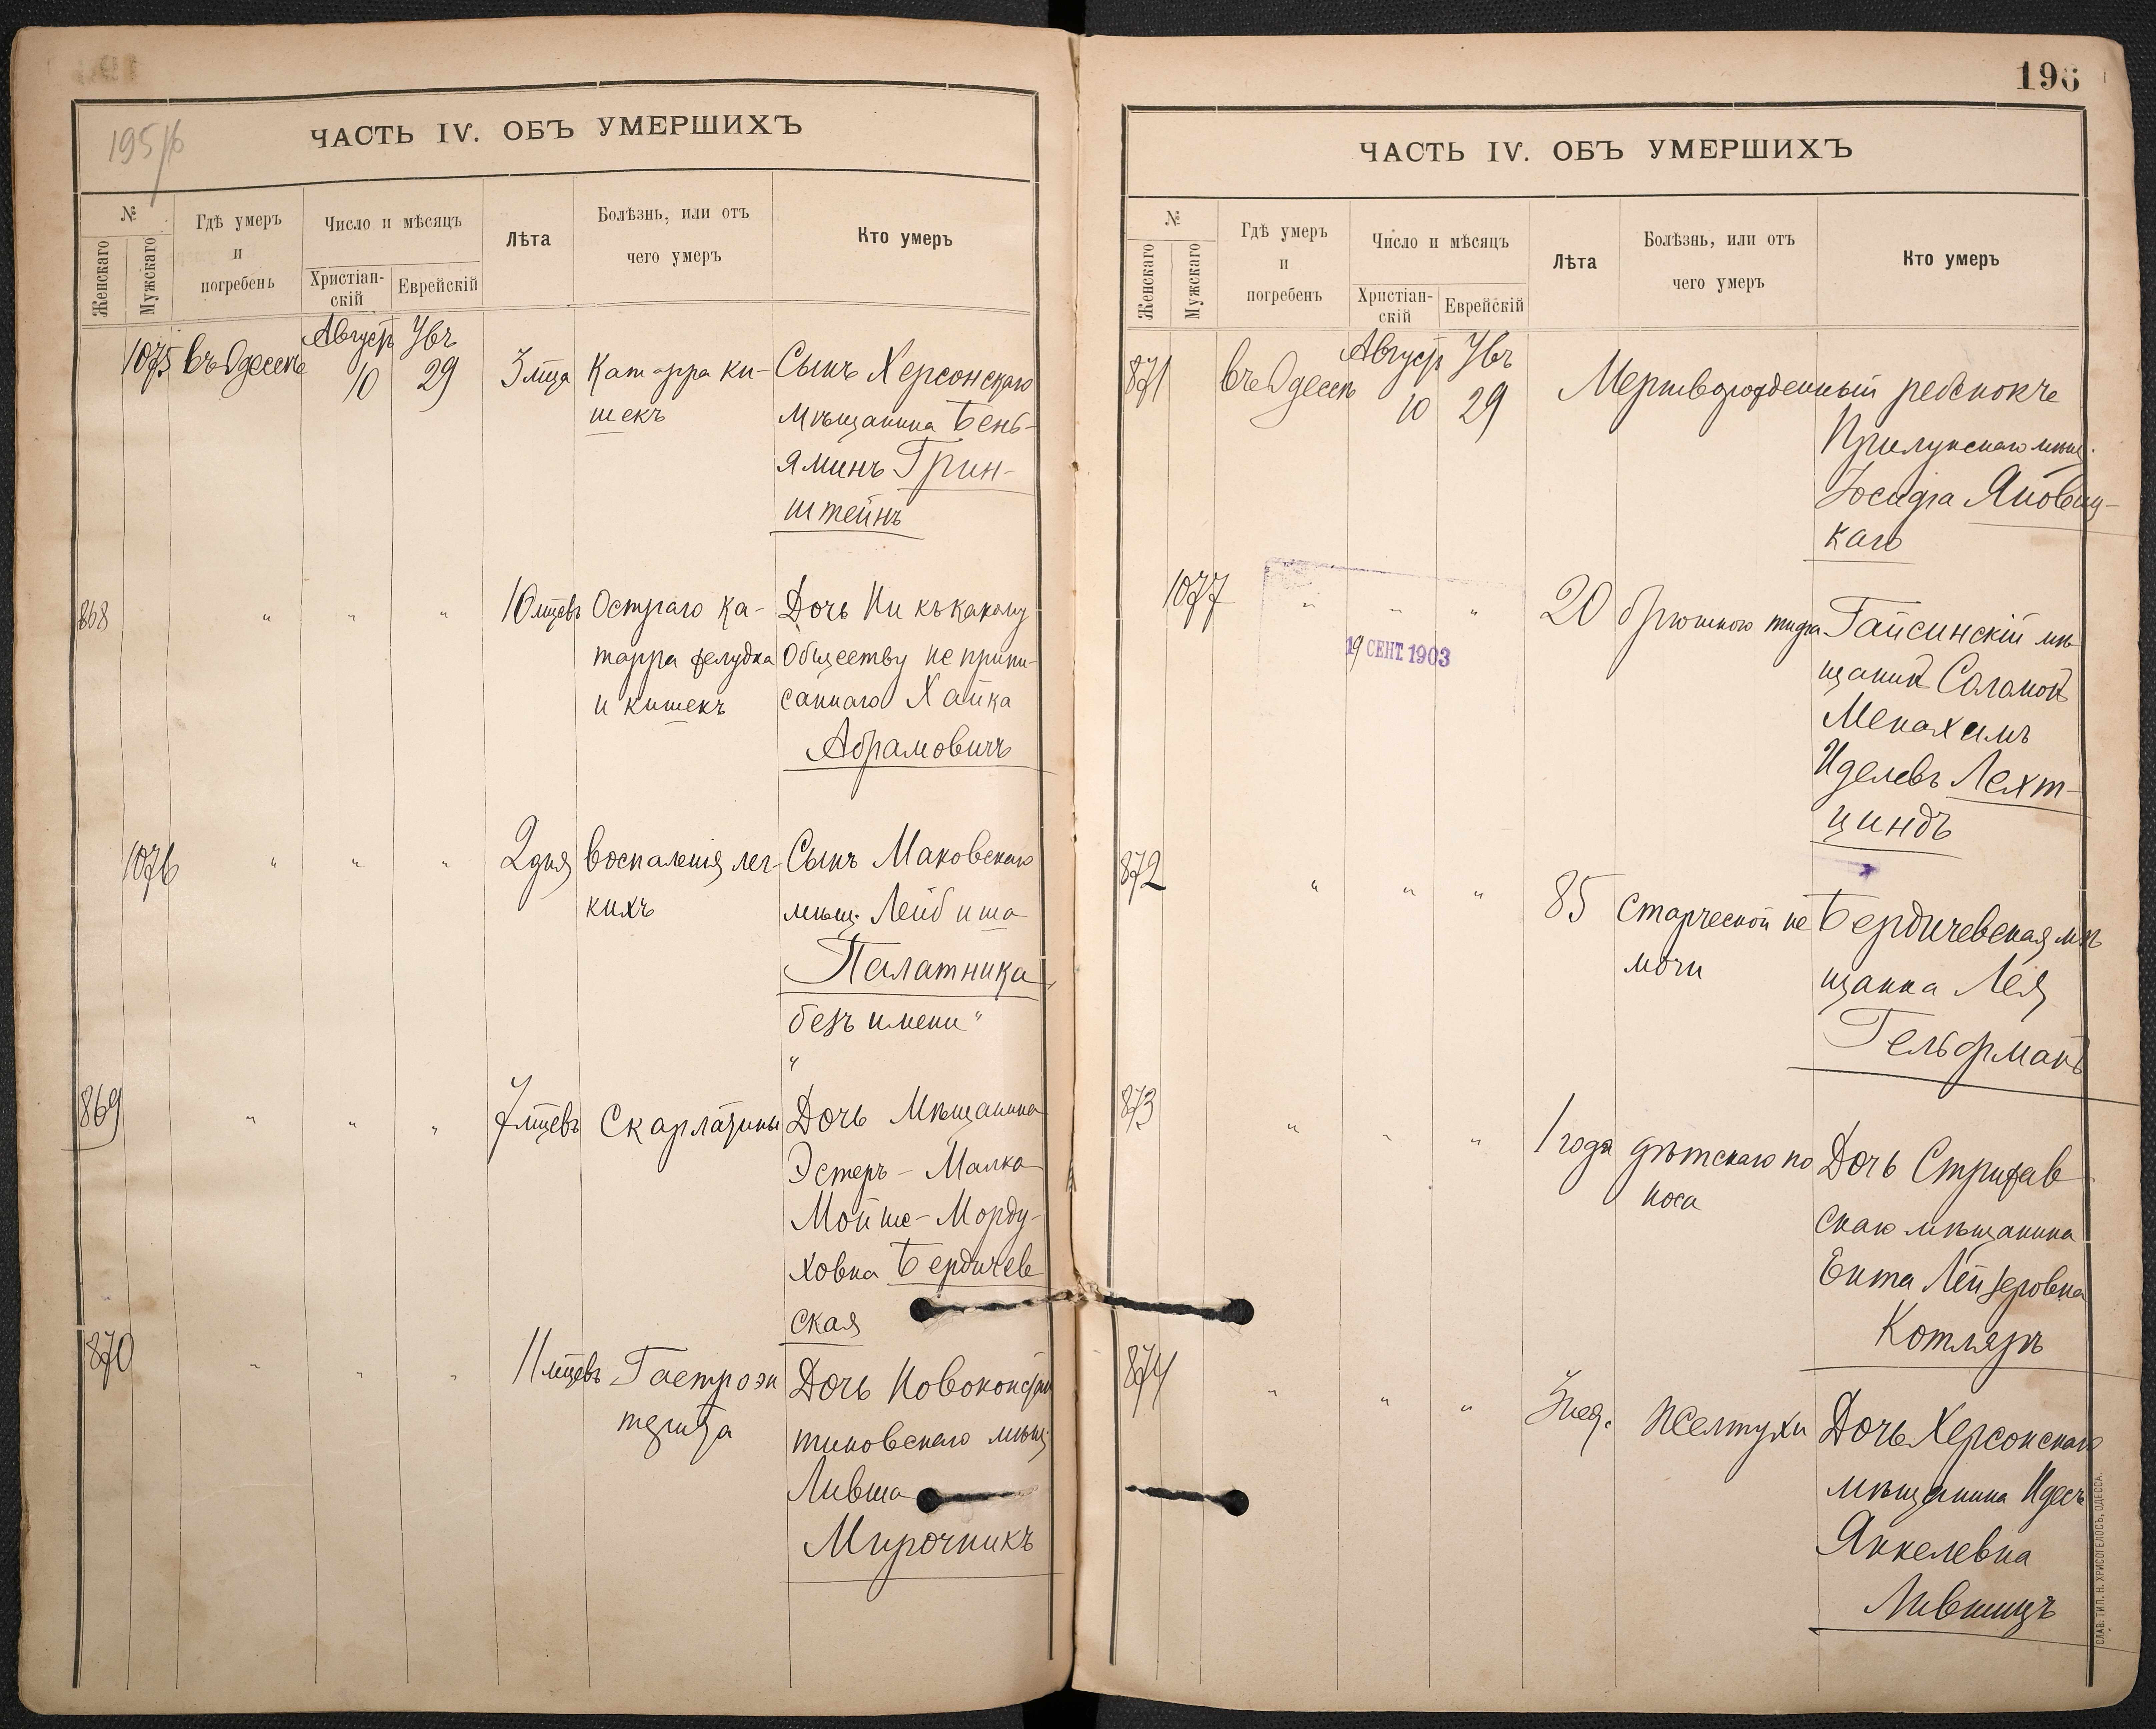 195/б
ЧАСТЬ IV. ОБЪ УМЕРШИХЪ
№
Женскаго
Мужскаго
Гдѣ умеръ
и
погребенъ
Число и мѣсяцъ
Христіан-
скій
Еврейскій
Лѣта
Болѣзнь, или отъ
чего умеръ
Кто умеръ
Август Увъ
1075 въ Одессѣ 10 29 3 мца Катарра ки- Сынъ Херсонскаго
шекъ мѣщанина Бень-
яминъ Грин-
штейнъ
868 " " " 10 мцевъ Остраго ка- Дочь Ни къ какому
тарра желудка Обществу не припи-
и кишекъ саннаго Хайка
Абрамовичъ
1076 " " " 2 дня воспаленія лег- Сынъ Маковскаго
кихъ мѣщ. Лейбиша
Палатника
безъ имени "
"
869 " " " 7 мцевъ Скарлатины Дочь Мѣщанина
Эстеръ - Малка
Мойше - Морду-
ховна Бердичев
ская
870 " " " 11 мцевъ Гастроэн Дочь Новоконстан
терита тиновскаго мѣщ.
Лившa
Мирочникъ
196
ЧАСТЬ IV. ОБЪ УМЕРШИХЪ
№
Женскаго
Мужскаго
Гдѣ умеръ
и
погребенъ
Число и мѣсяцъ
Христіан-
скій
Еврейскій
Лѣта
Болѣзнь, или отъ
чего умеръ
Кто умеръ
Август Увъ
871 въ Одессѣ 10 29 Мертворожденный ребенокъ
Прилукскаго мѣщ.
Іосифа Яновиц-
каго
1077 " " " 20 брюшного тифа Гайсинскій мѣ
19 СЕНТ. 1903
щанинъ Саломонъ
Менахемъ
Иделевъ Лехт-
циндъ
872 " " " 85 Старческой не Бердичевская мѣ
мочи щанка Лея
Гельфманъ
873 " " " 1 года дѣтскаго по Дочь Стрижав
носа скаго мѣщанина
Ента Лейзеровна
Котляръ
874 " " " 3 нед. Желтухи Дочь Херсонскаго
мѣщанина Идесъ
Янкелевна
Лившицъ
СЛАВ. ТИП. Н. ХРИСОГЕЛОСЪ, ОДЕССА.